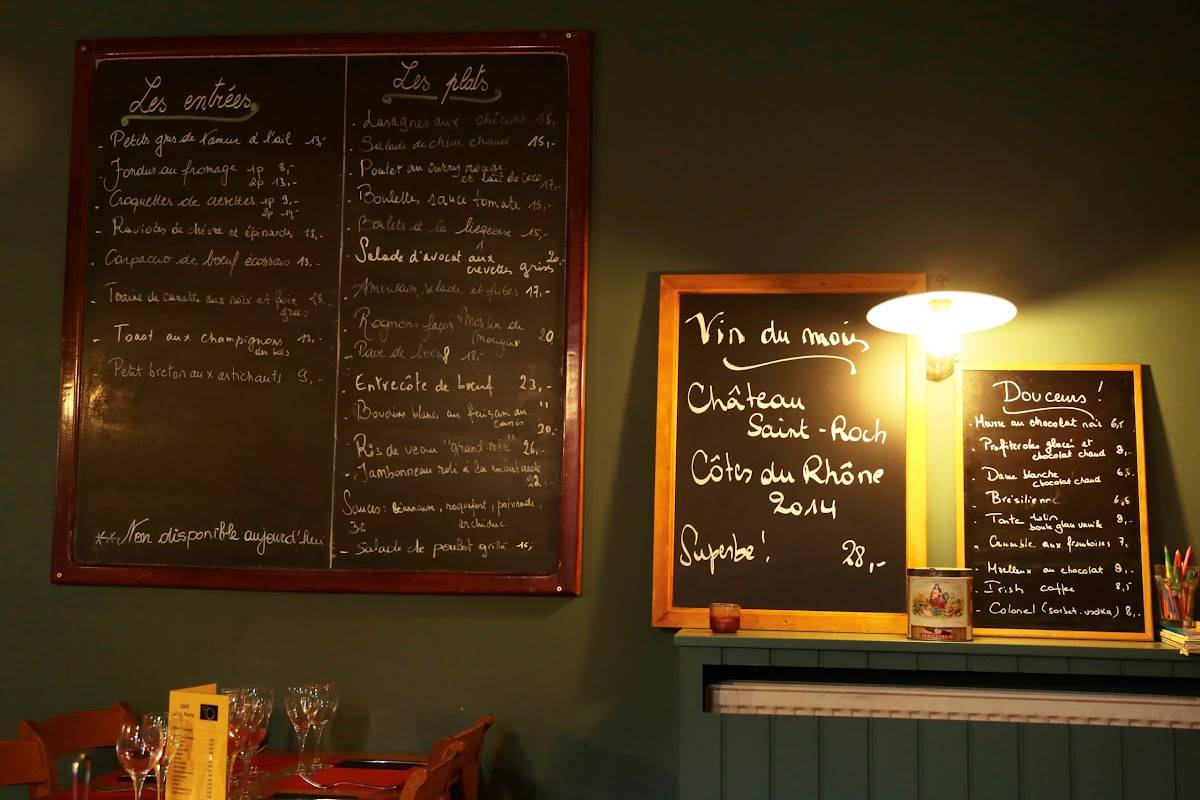 Les entrées
- Petits gris de Namur à l'ail 13,-
- Fondus au fromage 1p 8,-
2p 13,-
- Croquettes de crevettes 1p 9,-
2p 14,-
- Ravioles de chèvre et épinards 13,-
- Carpaccio de bœuf écossais 13,-
- Terrine de canette aux noix et foie 13,-
gras
- Toast aux champignons 12,-
des bois
- Petit breton aux artichauts 9,-
** Non disponible aujourd'hui
Les plats
- Lasagnes aux chicons 15,-
- Salade de chèvre chaud 15,-
- Poulet au curry rouge
et lait de coco 17,-
- Boulettes sauce tomate 15,-
- Boulets à la liégeoise 15,-
- Salade d'avocat aux 20,-
crevettes grises
- Américain, salade et frites 17,-
- Rognons façon "Moulin de
Mougins" 20,-
- Pavé de bœuf 18,-
- Entrecôte de bœuf 23,-
- Boudins blancs au faisan
20,-
- Ris de veau "grand-mère" 26,-
- Jambonneau rôti à la moutarde
22,-
Sauces: béarnaise, roquefort, poivrade,
3€ archiduc
- Salade de poulet grillé 16,-
Vin du mois
Château
Saint-Roch
Côtes du Rhône
2014
Superbe! 28,-
Douceurs!
- Mousse au chocolat noir 6,5
- Profiteroles glacé et
chocolat chaud 8,-
- Dame blanche 6,5
chocolat chaud
- Brésilienne 6,5
- Tarte tatin 8,-
boule glace vanille
- Crumble aux framboises 7,-
- Moelleux au chocolat 8,-
- Irish coffee 8,5
- Colonel (sorbet-vodka) 8,-